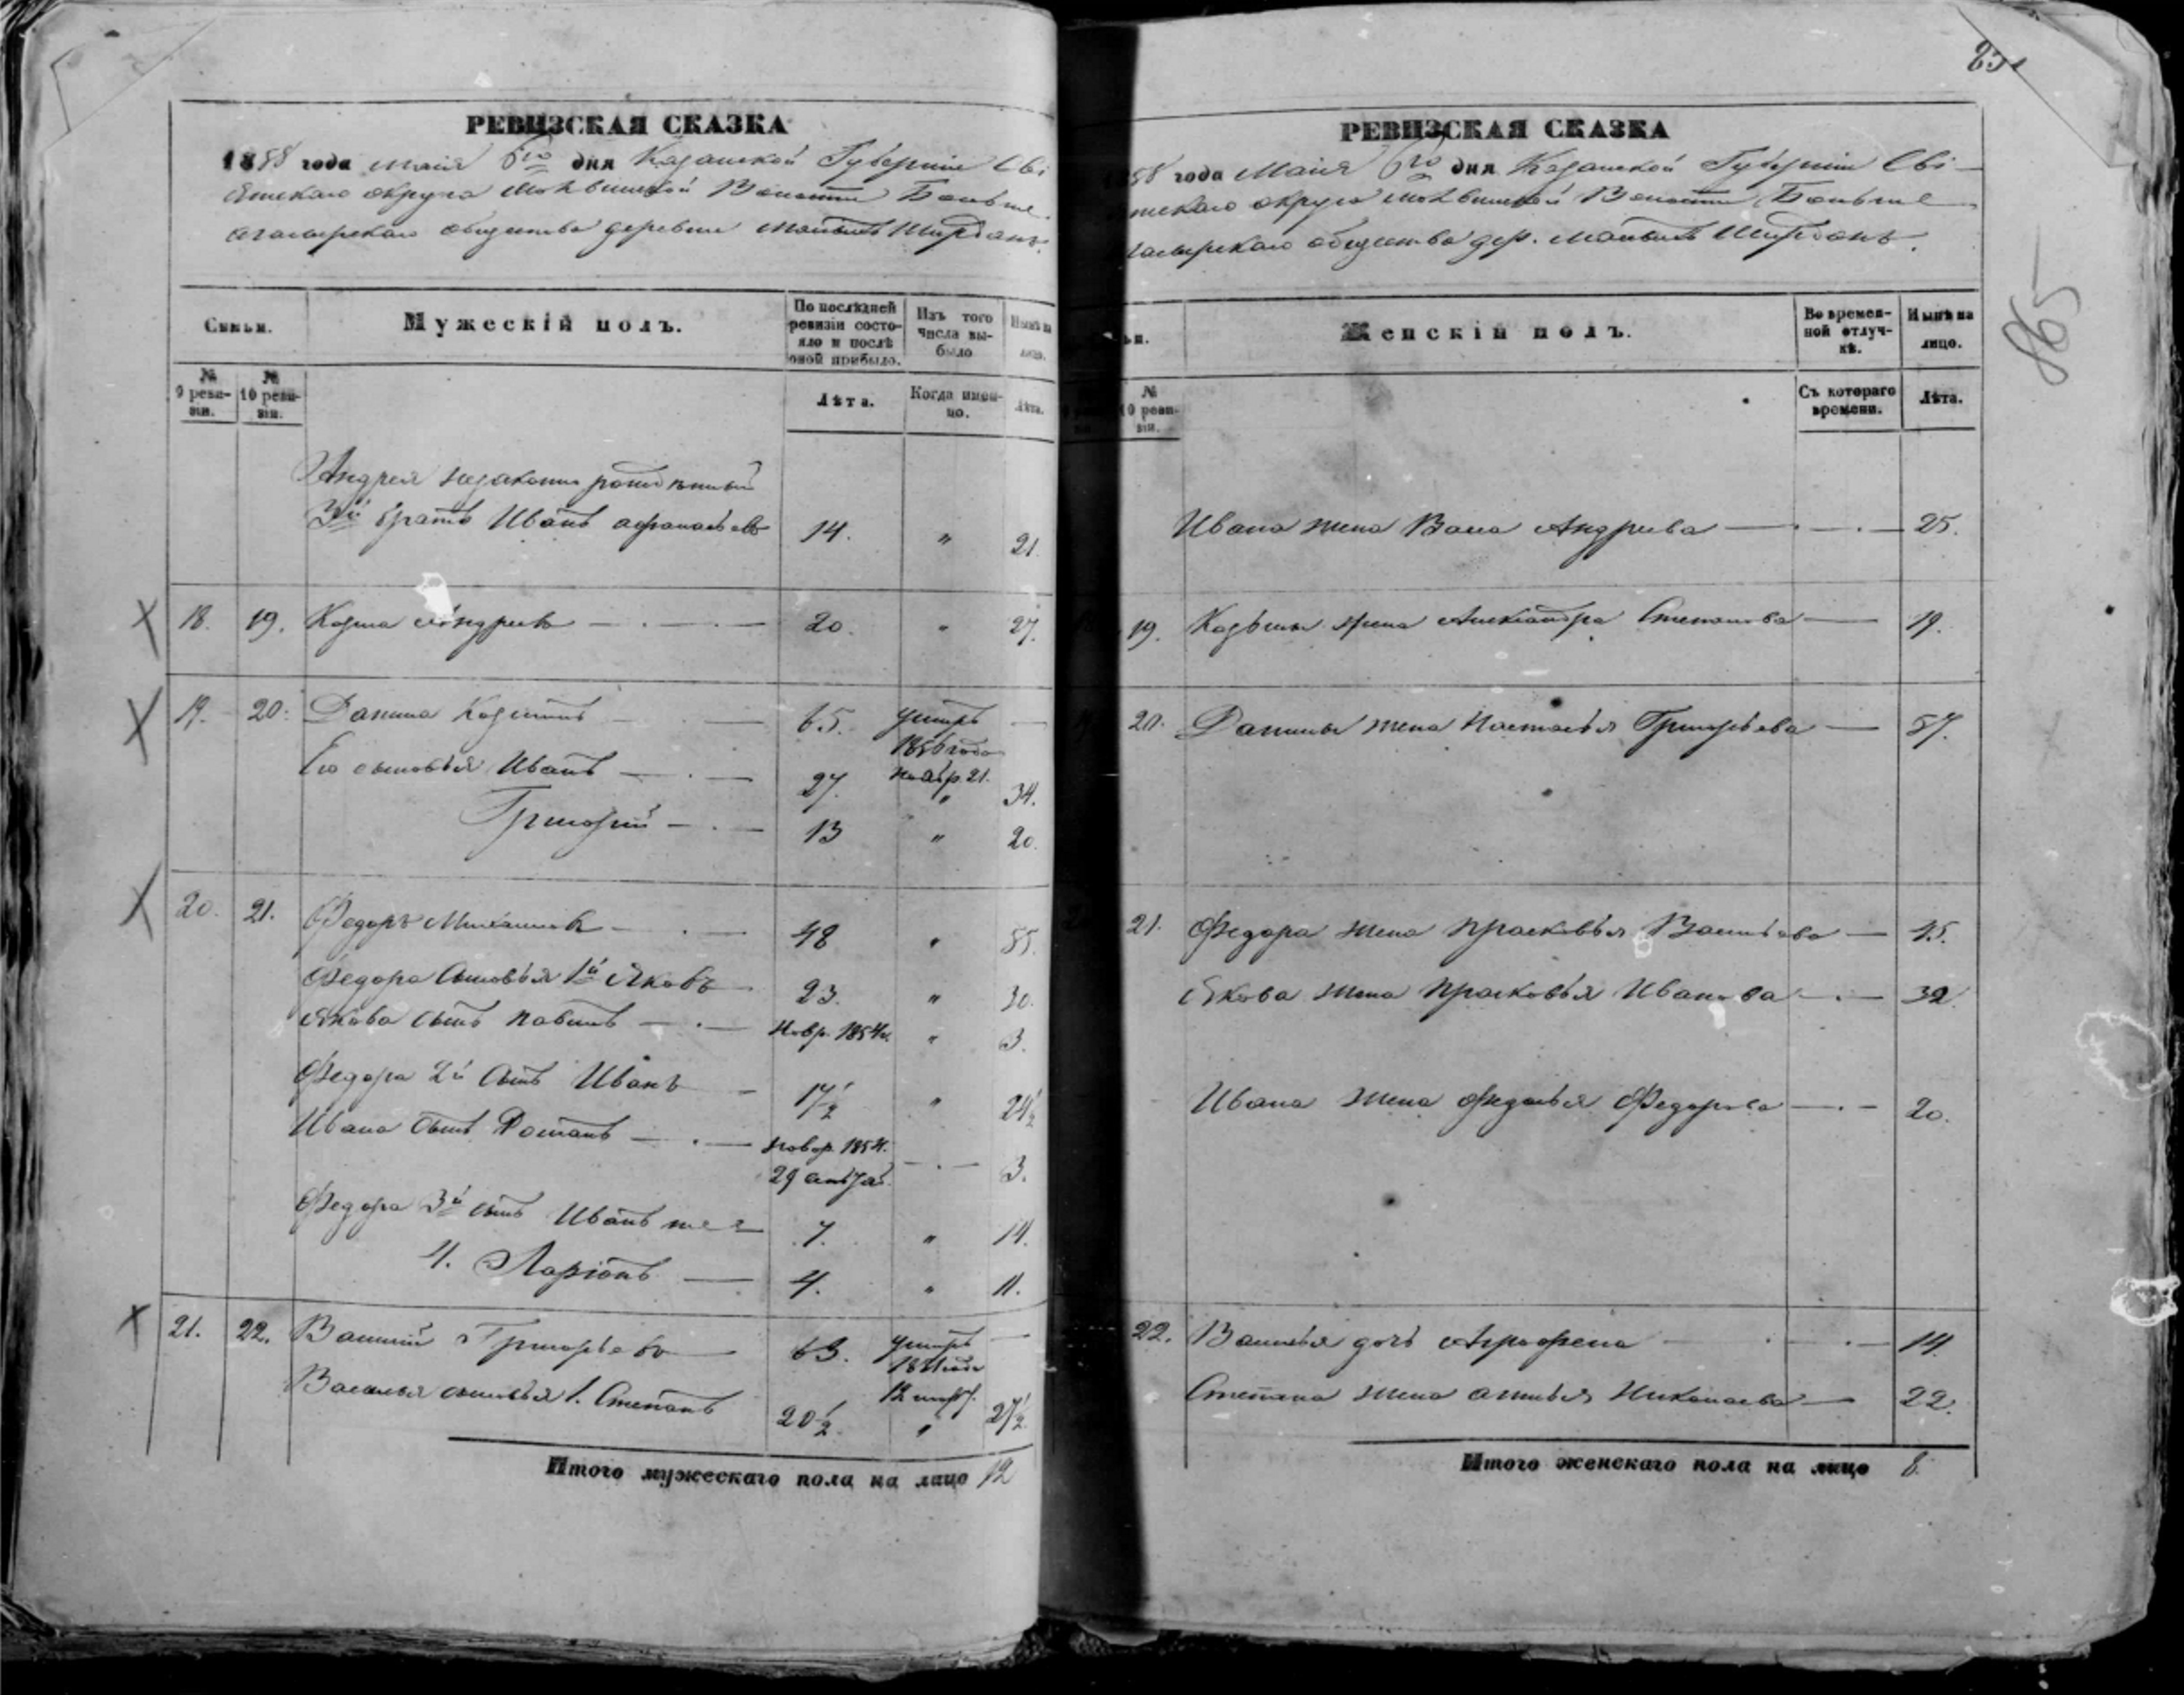 РЕВИЗСКАЯ СКАЗКА
1858 года Маія 6го дня Казанской Губерніи Сві
яжскаго округа Волости Больше
общества деревни Малыхъ Ширданъ
Семьи.
Мужескій полъ.
По послѣдней ревизіи состояло и послѣ оной прибыло.
Изъ того числа выбыло
Нынѣ на лицо.
№ 9 ревизіи.
№ 10 ревизіи.
Лѣта.
Когда именно.
Лѣта.
Андрея незаконно рожденный
3й братъ Иванъ Афанасьевъ 14. " 21.
18. 19. Козма Андреевъ 20. " 27.
19. 20. Данила Козминъ 65. умеръ —
1856 года
Его сыновья Иванъ 27. ноябр. 21. " 34.
Григорій 13 " 20.
20. 21. Федоръ Михайловъ 48 " 55.
Федора сыновья 1й Яковъ 23. " 30.
Якова сынъ Павелъ новр. 1854 " 3.
Федора 2й сынъ Иванъ 17½ " 24½
Ивана сынъ Романъ новор. 1854.
29 — 3.
Федора 3й сынъ Иванъ же 7. " 14.
4. Ларіонъ 4. " 11.
21. 22. Василій Григорьевъ 63. умеръ —
Василья сыновья 1. Степанъ 20½ " 27½
Итого мужескаго пола на лицо 12
865
РЕВИЗСКАЯ СКАЗКА
58 года Маія 6го дня Казанской Губерніи Сві
яжскаго округа Волости Больше
общества дер. Малыхъ Ширданъ.
ьи.
Женскій полъ.
Во временной отлучкѣ.
Нынѣ на лицо.
№ 10 ревизіи.
Съ котораго времени.
Лѣта.
Ивана жена Васса Андреева 25.
19. Козьмы жена Александра Степанова 19.
20. Данилы жена Настасья Григорьева 57.
21. Федора жена Прасковья Васильева 45.
Якова жена Прасковья Иванова 32
Ивана жена Федосья Федорова 20.
22. Василья дочь Аграфена 14.
Степана жена Николаева 22.
Итого женскаго пола на лицо 8.